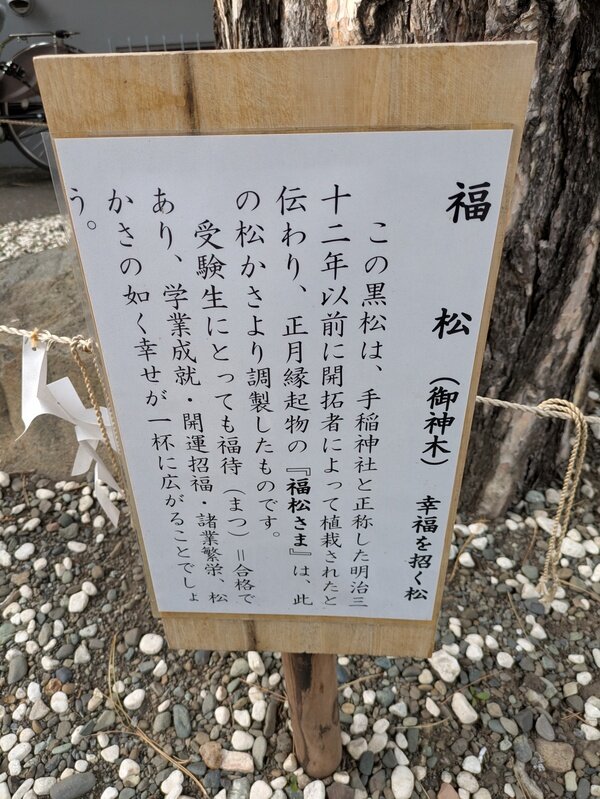 福　松（御神木）　幸福を招く松
この黒松は、手稲神社と正称した明治三
十二年以前に開拓者によって植栽されたと
伝わり、正月縁起物の『福松さま』は、此
の松かさより調製したものです。
受験生にとっても福待（まつ）＝合格で
あり、学業成就・開運招福・諸業繁栄、松
かさの如く幸せが一杯に広がることでしょ
う。